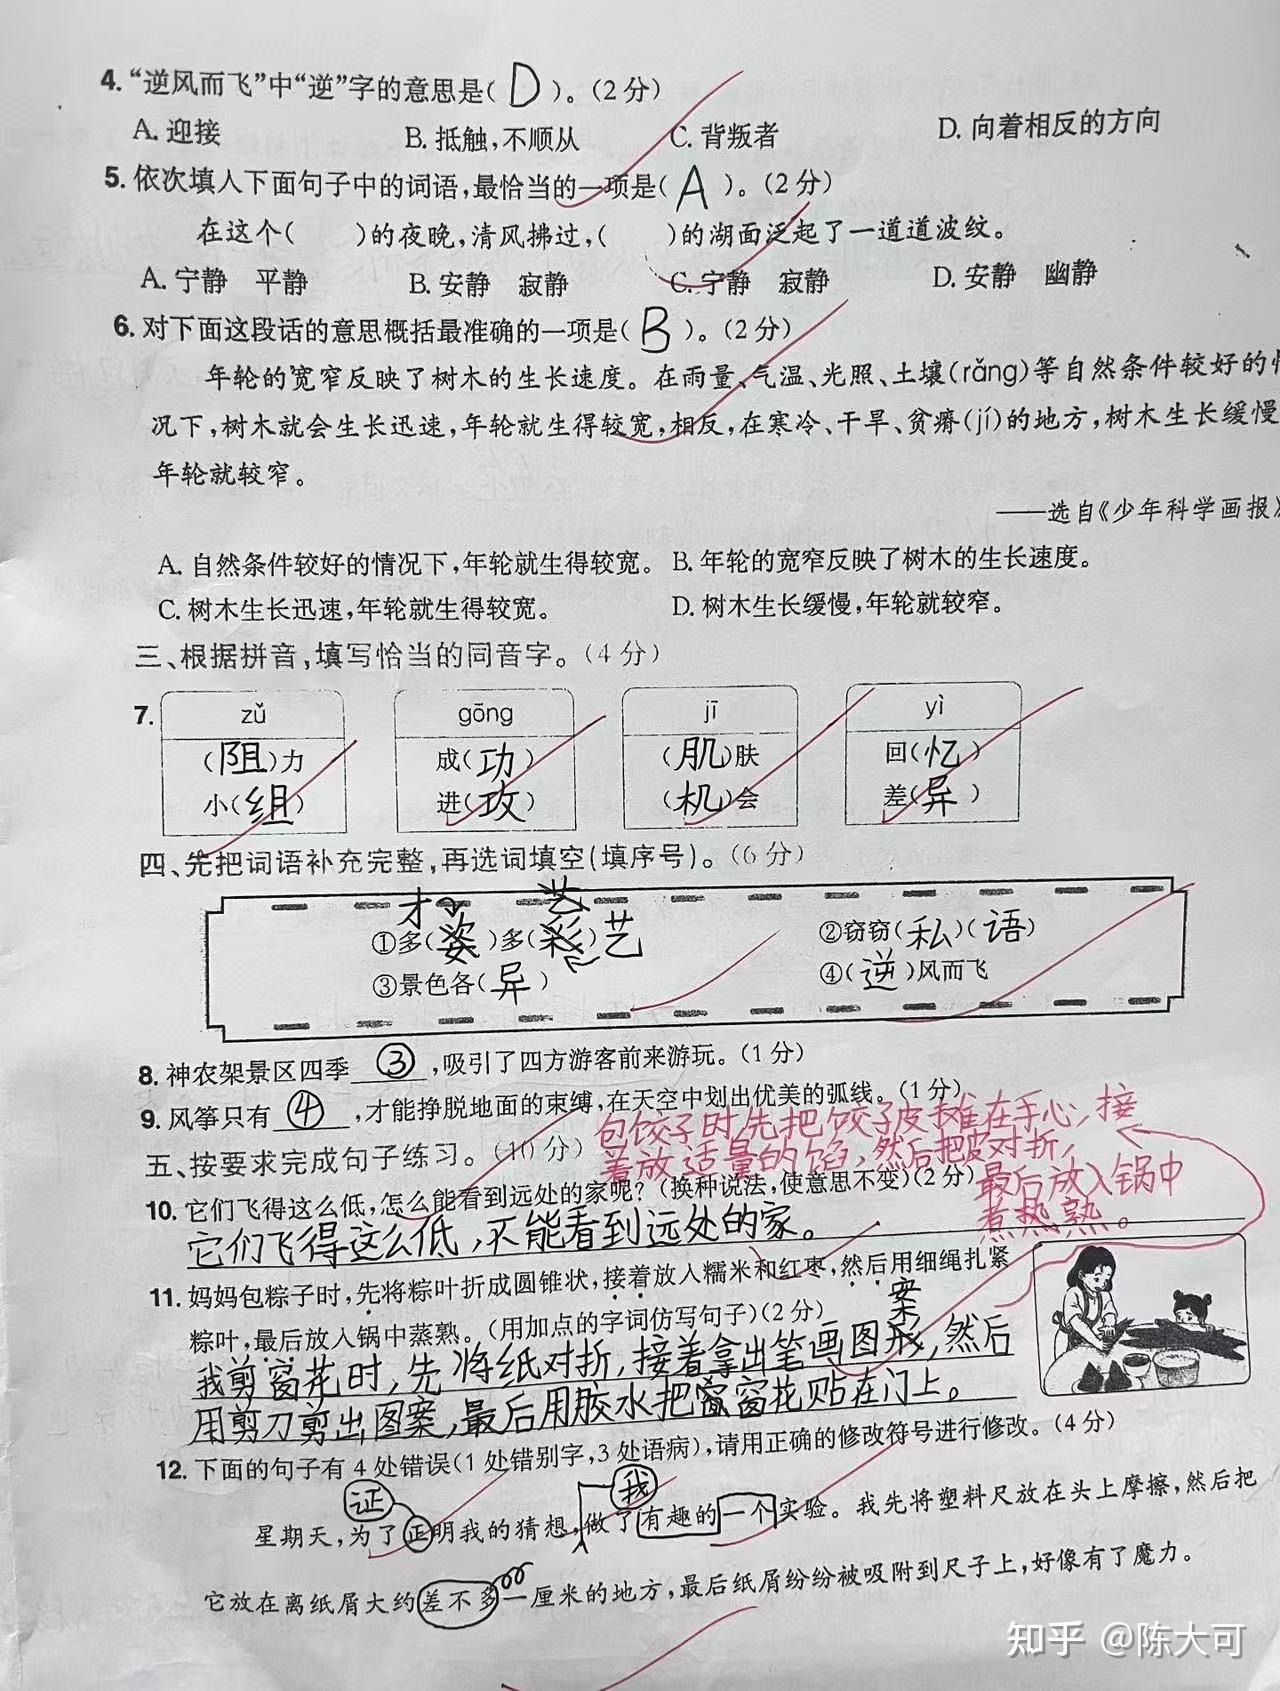 4. “逆风而飞”中“逆”字的意思是( D )。(2分)
A. 迎接 B. 抵触,不顺从 C. 背叛者 D. 向着相反的方向
5. 依次填入下面句子中的词语,最恰当的一项是( A )。(2分)
在这个( )的夜晚,清风拂过,( )的湖面泛起了一道道波纹。
A. 宁静 平静 B. 安静 寂静 C. 宁静 寂静 D. 安静 幽静
6. 对下面这段话的意思概括最准确的一项是( B )。(2分)
年轮的宽窄反映了树木的生长速度。在雨量、气温、光照、土壤(rǎng)等自然条件较好的情
况下,树木就会生长迅速,年轮就生得较宽,相反,在寒冷、干旱、贫瘠(jí)的地方,树木生长缓慢
年轮就较窄。
——选自《少年科学画报》
A. 自然条件较好的情况下,年轮就生得较宽。 B. 年轮的宽窄反映了树木的生长速度。
C. 树木生长迅速,年轮就生得较宽。 D. 树木生长缓慢,年轮就较窄。
三、根据拼音,填写恰当的同音字。(4分)
7. zǔ gōng jī yì
(阻)力 成(功) (肌)肤 回(忆)
小(组) 进(攻) (机)会 差(异)
四、先把词语补充完整,再选词填空(填序号)。(6分)
才 艺
①多(姿)多(彩)艺 ②窃窃(私)(语)
③景色各(异) ④(逆)风而飞
8. 神农架景区四季 ③ ,吸引了四方游客前来游玩。(1分)
9. 风筝只有 ④ ,才能挣脱地面的束缚,在天空中划出优美的弧线。(1分)
包饺子时,先把饺子皮摊在手心,接
着放适量的馅,然后把皮对折,
最后放入锅中
煮热熟。
五、按要求完成句子练习。(10分)
10. 它们飞得这么低,怎么能看到远处的家呢?(换种说法,使意思不变)(2分)
它们飞得这么低,不能看到远处的家。
11. 妈妈包粽子时,先将粽叶折成圆锥状,接着放入糯米和红枣,然后用细绳扎紧
粽叶,最后放入锅中蒸熟。(用加点的字词仿写句子)(2分)
案
我剪窗花时,先将纸对折,接着拿出笔画图形,然后
用剪刀剪出图案,最后用胶水把窗窗花贴在门上。
12. 下面的句子有4处错误(1处错别字,3处语病),请用正确的修改符号进行修改。(4分)
证 我
星期天,为了正明我的猜想,做了有趣的一个实验。我先将塑料尺放在头上摩擦,然后把
它放在离纸屑大约差不多一厘米的地方,最后纸屑纷纷被吸附到尺子上,好像有了魔力。
知乎 @陈大可